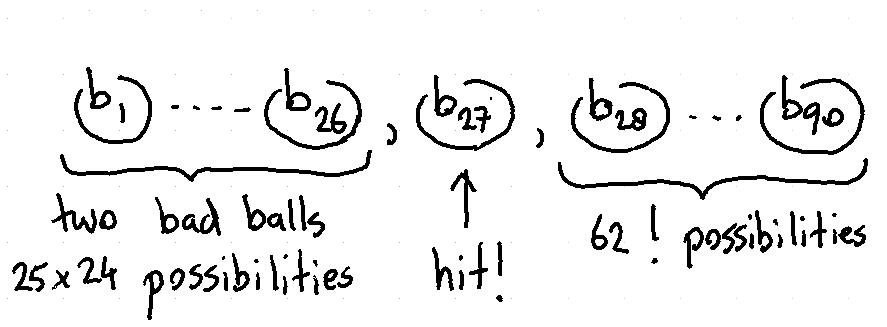 b₁ ----- b₂₆ , b₂₇ , b₂₈ ... b₉₀
two bad balls
25x24 possibilities
hit!
62 ! possibilities